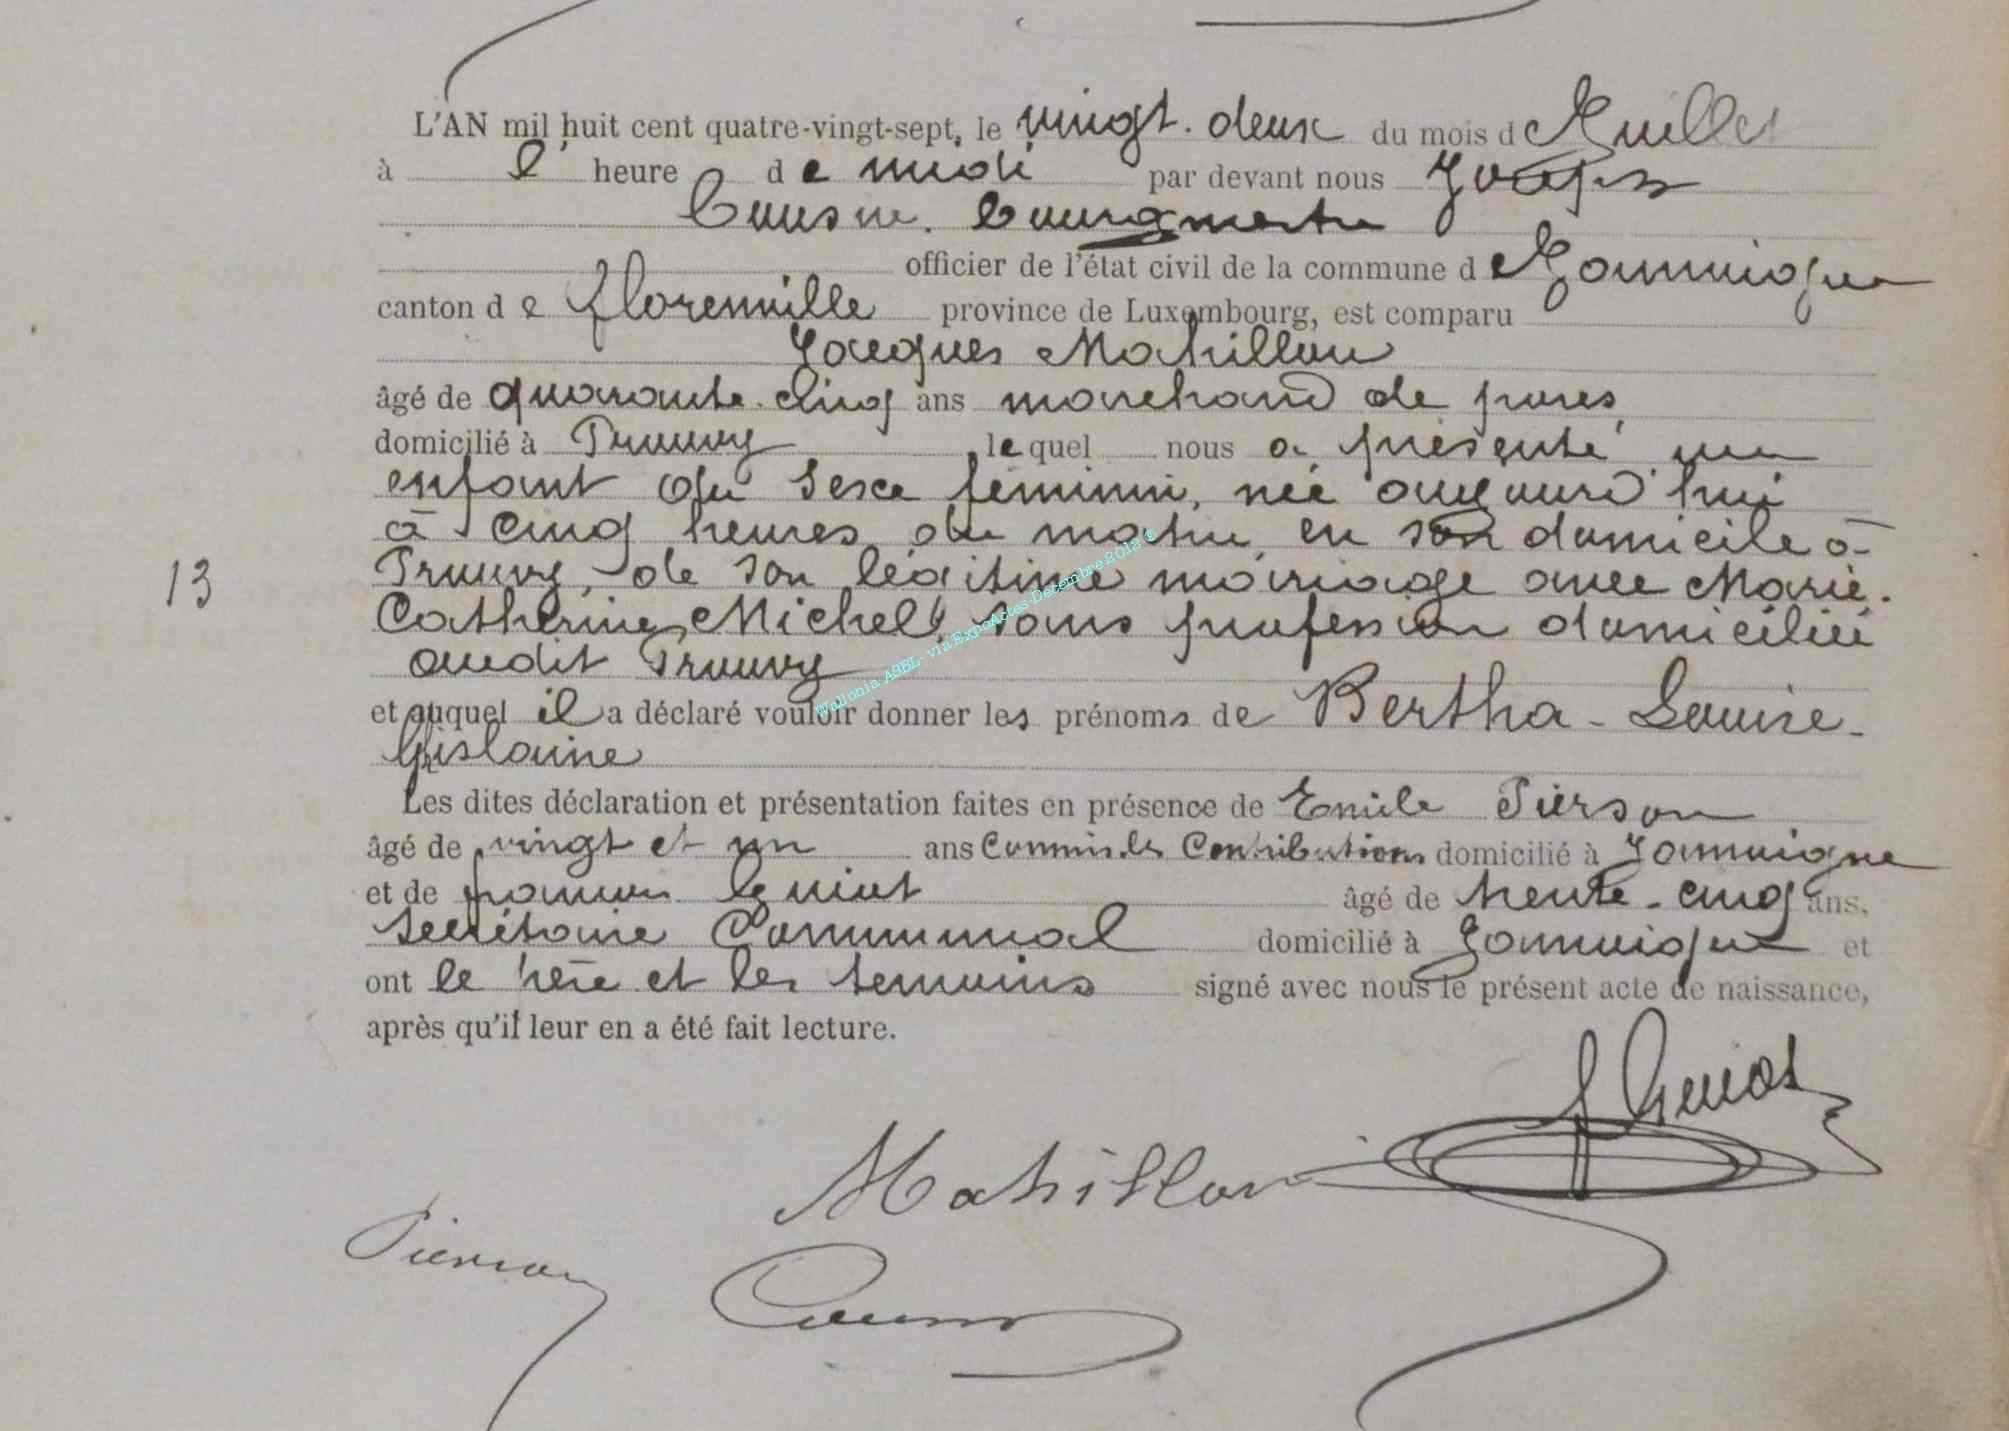 L'AN mil huit cent quatre-vingt-sept, le vingt-deux du mois d Juillet
à l' heure de midi par devant nous Joseph
bourgmestre
officier de l'état civil de la commune d Jamoigne
canton de florenville province de Luxembourg, est comparu
Jacques Mahillon
âgé de quarante-cinq ans marchand de porcs,
domicilié à Prouvy lequel nous a présenté un
enfant du sexe féminin, née aujourd'hui
à cinq heures du matin, en son domicile à
13
Prouvy, de son légitime mariage avec Marie-
Catherine Michel, sans profession domiciliée
audit Prouvy
et auquel il a déclaré vouloir donner les prénoms de Bertha-Louise-
Ghislaine
Les dites déclaration et présentation faites en présence de Emile Pierson
âgé de vingt et un ans Commis des Contributions domicilié à Jamoigne
et de françois Guiot âgé de trente-cinq ans,
secrétaire Communal domicilié à Jamoigne et
ont le père et les temoins signé avec nous le présent acte de naissance,
après qu'il leur en a été fait lecture.
f Guiot
Mahillon
Pierson
Wallonia ASBL- via ExpoActes-Décembre 2012 ©